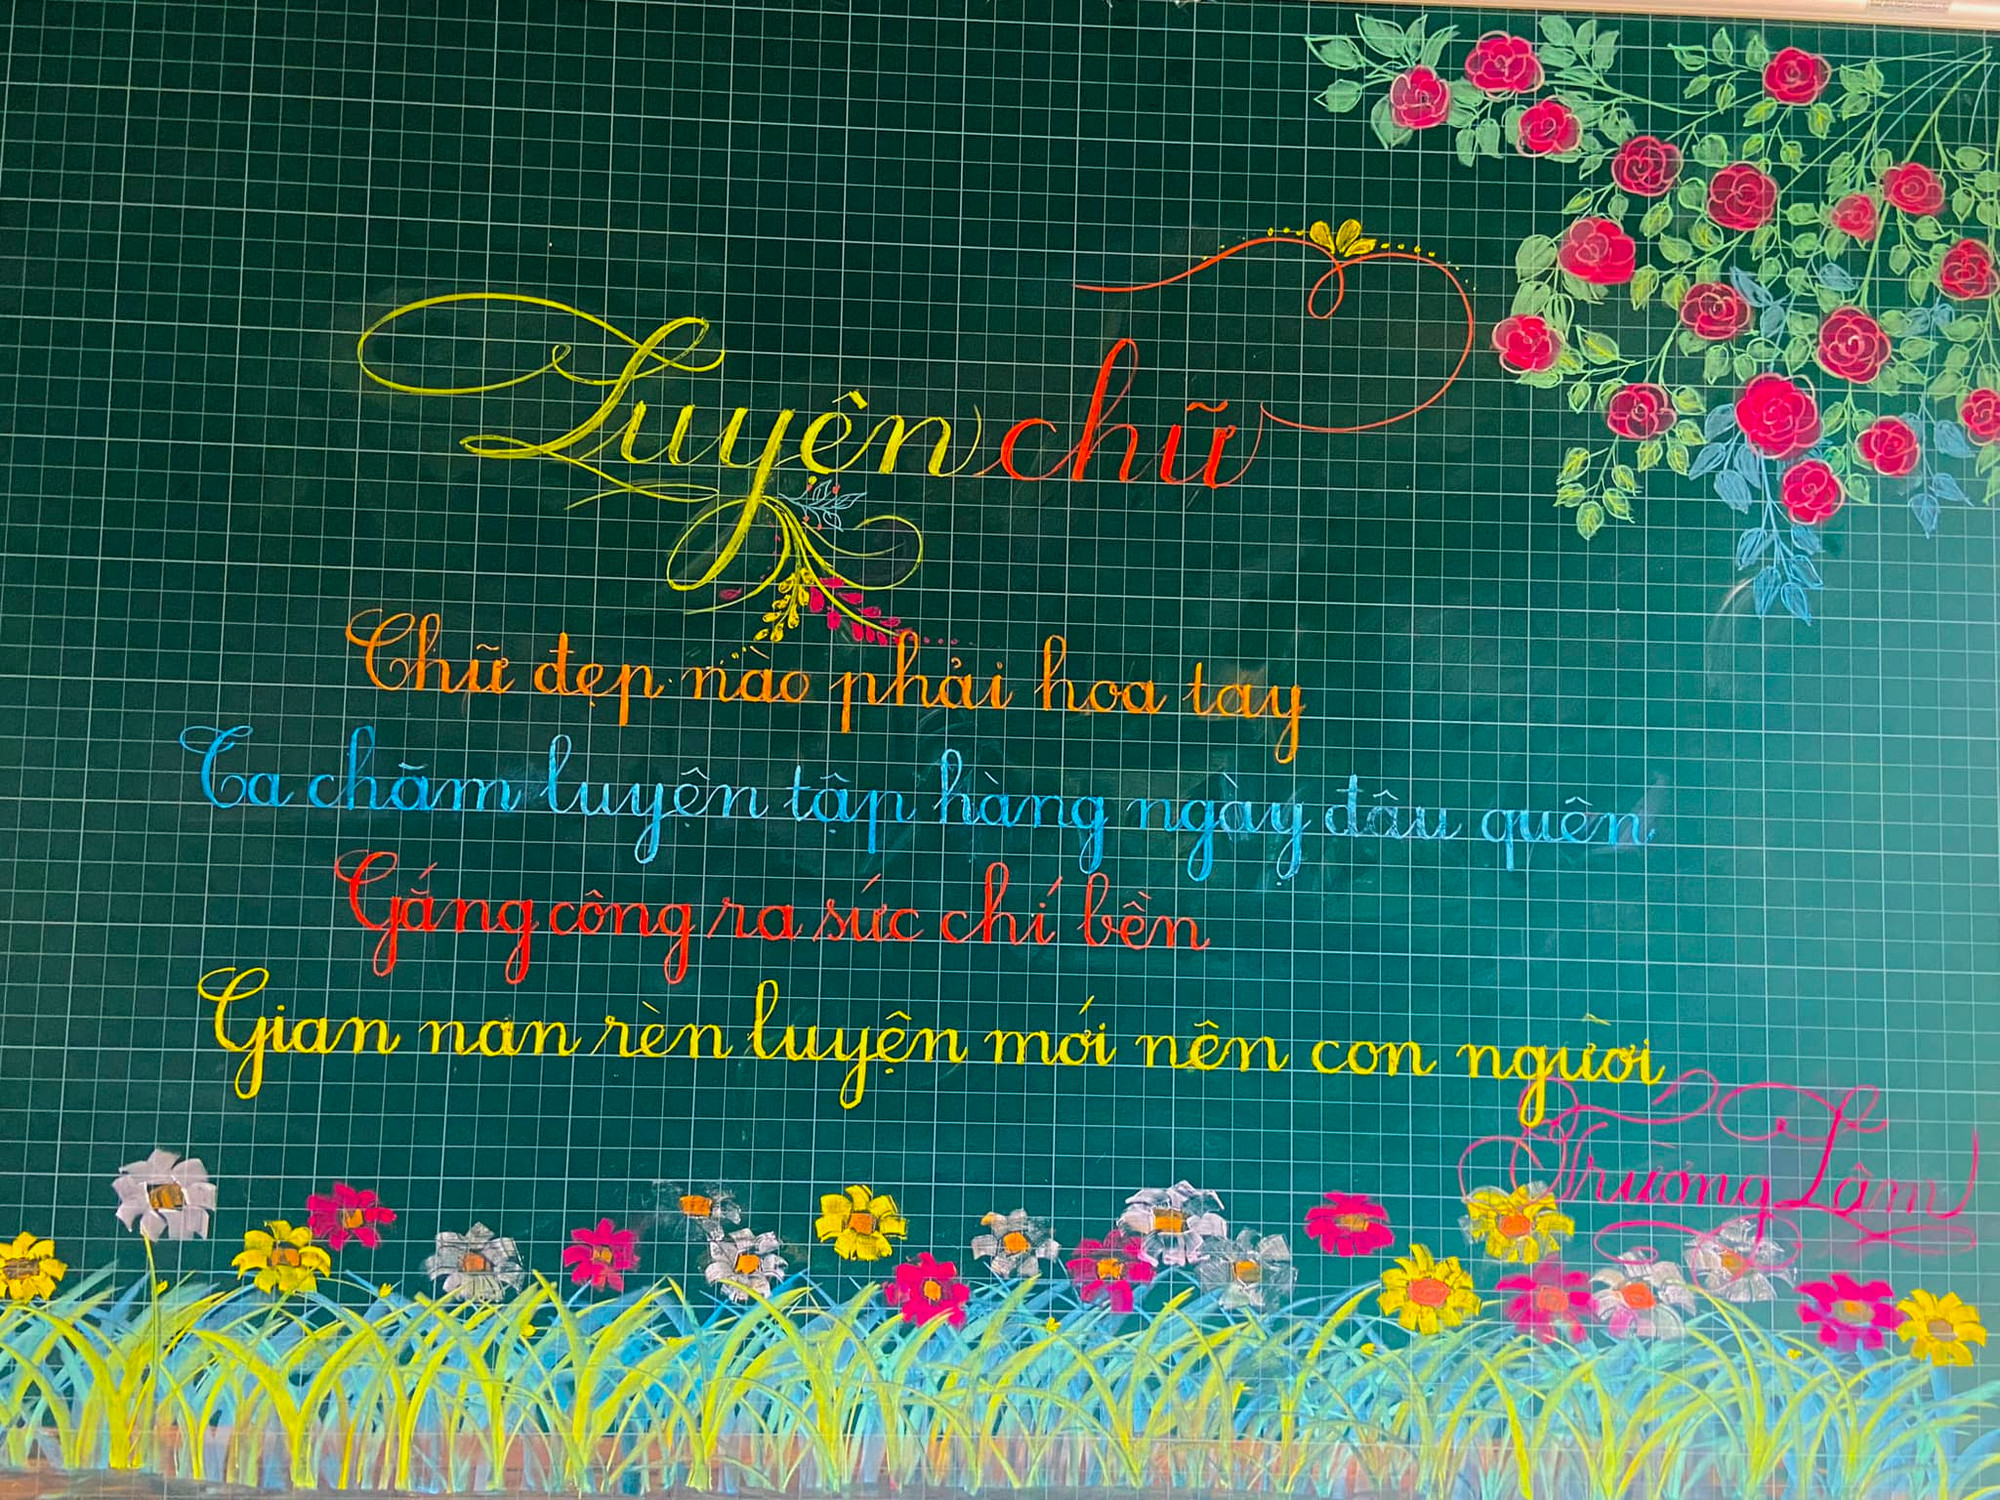 Luyên chữ
Chữ đẹp nào phải hoa tay
Ta chăm luyện tập hàng ngày đâu quên
Gắng công ra sức chí bền
Gian nan rèn luyện mới nên con người
Trường Lâm